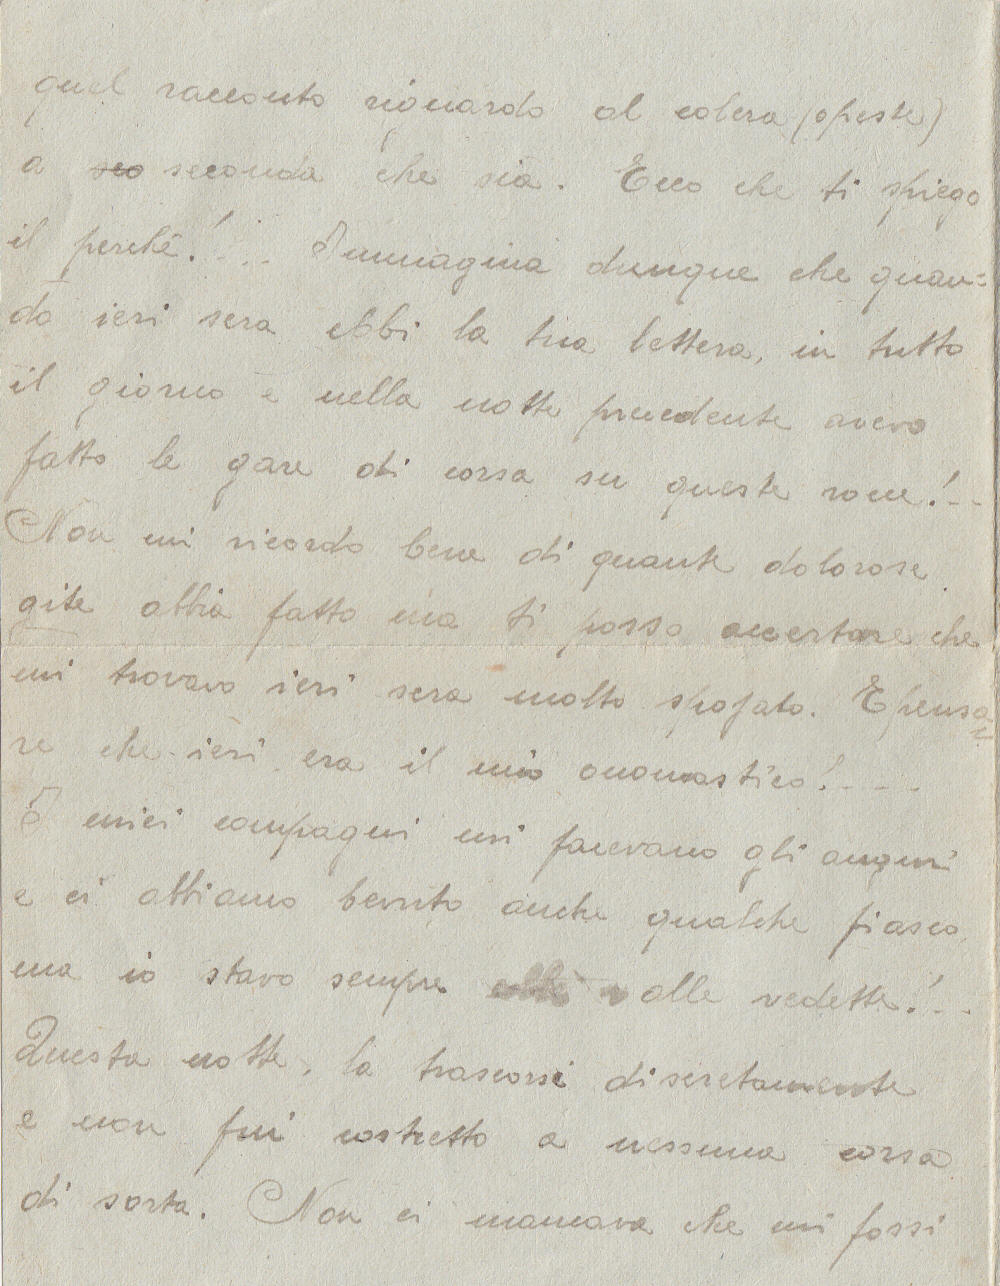 quel racconto riguardo al colera (o peste)
a seconda che sia. Ecco che ti spiego
il perchè!.... Immagina dunque che quan=
do ieri sera ebbi la tua lettera, in tutto
il giorno e nella notte precedente avevo
fatto le gare di corsa su queste rocce!..
Non mi ricordo bene di quante dolorose
gite abbia fatto ma ti posso accertare che
mi trovavo ieri sera molto spossato. E pensa=
re che ieri era il mio onomastico!....
I miei compagni mi facevano gli auguri
e ci abbiamo bevuto anche qualche fiasco,
ma io stavo sempre alle vedette!...
Questa notte, la trascorsi discretamente
e non fui costretto a nessuna corsa
di sorta. Non ci mancava che mi fossi